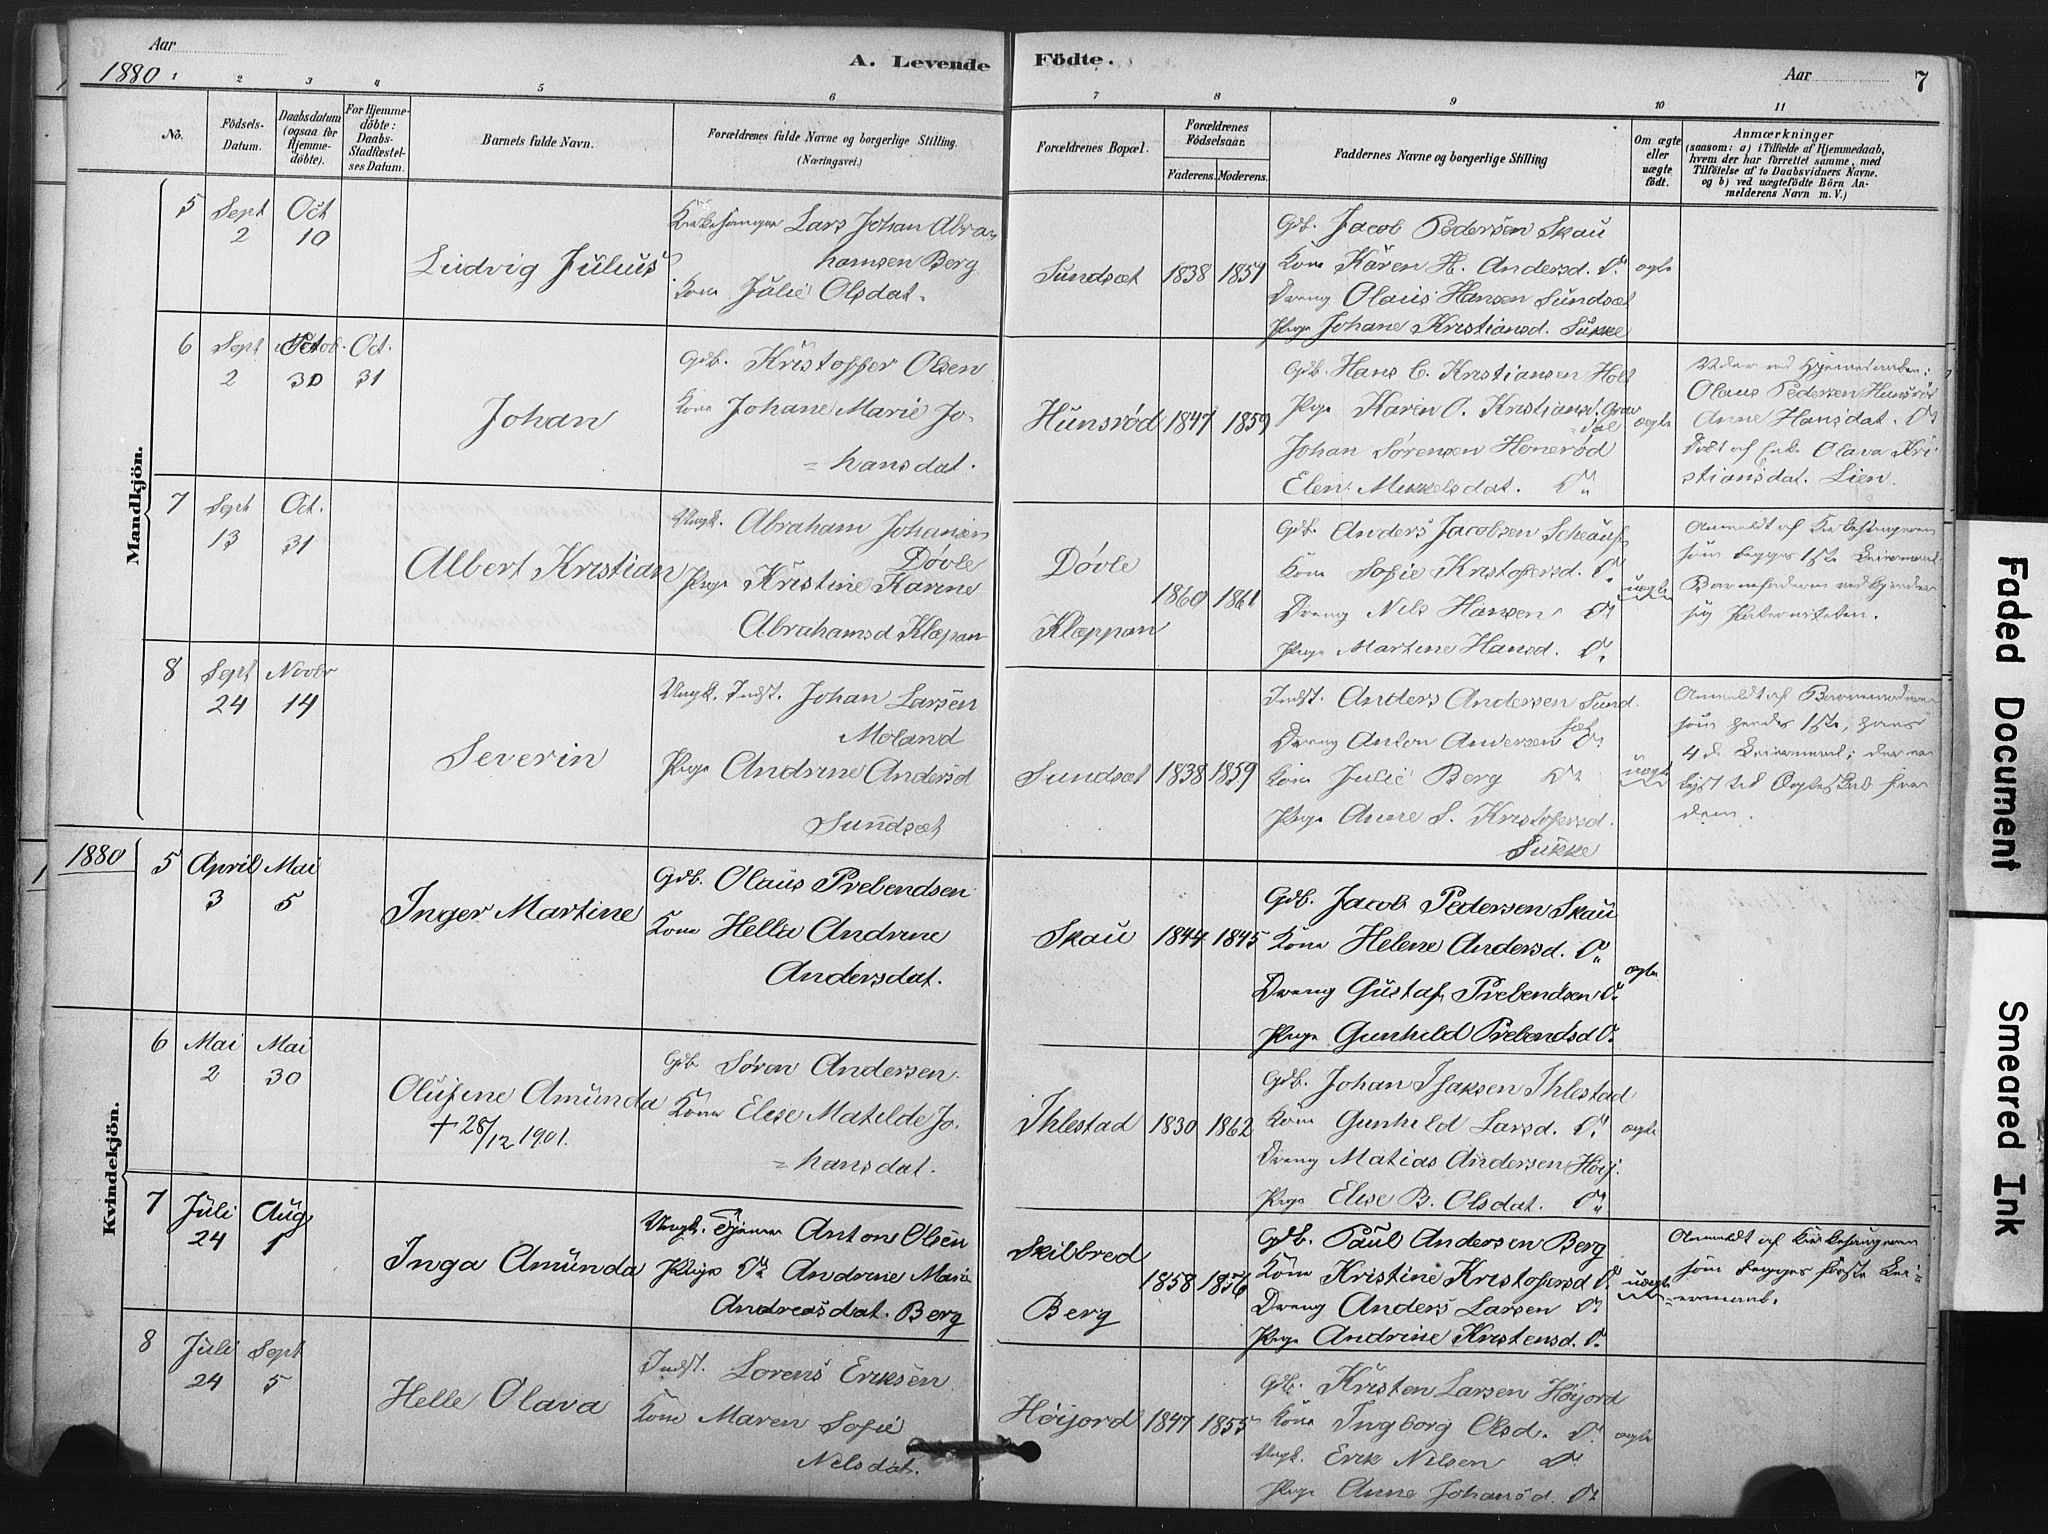 Aar
1880
A. Levende Födte.
Aar
7
1 2 3 4 5 6 7 8 9 10 11
No.
Födsels-
Datum.
Daabsdatum
(ogsaa for
Hjemme-
döbte).
For Hjemme-
döbte:
Daabs-
Stadfæstel-
ses Datum.
Barnets fulde Navn.
Forældrenes fulde Navne og borgerlige Stilling.
(Næringsvei.)
Forældrenes Bopæl.
Forældrenes
Födselsaar.
Faderens. Moderens.
Faddernes Navne og borgerlige Stilling
Om ægte
eller
uægte
födt.
Anmærkninger
(saasom: a) i Tilfælde af Hjemmedaab,
hvem der har forrettet samme, med
Tilföielse af to Daabsvidners Navne.
og b) ved uægtefödte Börn An-
melderens Navn m. V.)
Mandkjön.
5
Sept
2
Oct
10
Ludvig Julius
Kirkesanger Lars Johan Abra
hamsen Berg
Kone Julie Olsdat.
Sundsæt
1838
1851
Gdb. Jacob Pedersen Skau
Kone Karen H. Andersd. Do
Dreng Olaus Hansen Sundsæt
Pige Johane Kristiansd. Sukke
ægte
6
Sept
2
Octob.
30
Oct.
31
Johan
Gdb. Kristoffer Olsen
Kone Johane Marie Jo-
=hansdat.
Hunsrød
1847
1859
Gdb. Hans C. Kristiansen Holt
Pige Karen O. Kristiansd. Grav
dal
Johan Sørensen Honerød
Elen Mikkelsdat. Do
ægte
Vidner ved Hjemmedaaben:
Olaus Pedersen Hunsrød
Anne Hansdat. Do
Døbt af Enke Olava Kri
stiansdat. Lien.
7
Sept
13
Oct.
31
Albert Kristian
Ungk. Abraham Johansen
Døvle
Pige Kristine Karine
Abrahamsd Klæpan
Døvle
Klæppan
1860
1861
Gdb. Anders Jacobsen
Kone Sofie Kristofersd. Do
Dreng Nils Hansen Do
Pige Martine Hansd. Do
uægte
Anmeldt af Kirkesangeren
som begges 1ste Leiermaal.
Barnefaderen vedkjender
sig Paterniteten.
8
Sept
24
Novbr
14
Severin
Ungk. Indst. Johan Larsen
Moland
Pige Andrine Andersd
Sundsæt
Sundsæt
1838
1859
Indst. Anders Andersen Sund
sæt
Dreng Anton Andersen Do
Kone Julie Berg Do
Pige Anne S. Kristofersd.
Sukke
uægte
Anmeldt af Barnemoderen
som hendes 1ste, hans
4de Leiermaal; der er
lyst til Ægteskab for
dem.
1880
Kvindekjön.
5
April
3
Mai
5
Inger Martine
Gdb. Olaus Prebendsen
Kone Hella Andrine
Andersdat.
Skau
1844
1845
Gdb. Jacob Pedersen Skau
Kone Helene Andersd. Do
Dreng Gustaf Prebendsen Do
Pige Gunhild Prebendsd Do
ægte
6
Mai
2
Mai
30
Olufine Amunda
+ 28/12 1901.
Gdb Søren Andersen.
Kone Elise Matilde Jo.
=hansdat.
Ihlestad
1830
1862
Gdb. Johan Isaksen Ihlestad
Kone Gunhild Larsd. Do
Dreng Matias Andersen Høij.
Pige Elise B. Olsdat. Do
ægte
7
Juli
24
Aug
1
Inga Amunda
Ungk. Tjener Anton Olsen
Pige Do Andrine Marie
Andreasdat. Berg
Skilbred
Berg
1858
1856
Gdb. Paul Andersen Berg
Kone Kristine Kristofersd Do
Dreng Anders Larsen Do
Pige Andrine Kristensd. Do
uægte
Anmeldt af Kirkesangeren
som begges første Lei-
=ermaal.
8
Juli
24
Sept
5
Helle Olava
Indst. Lorens Eriksen
Kone Maren Sofie
Nilsdat.
Høijord
1847
1855
Gdb. Kristen Larsen Høijord
Kone Ingborg Olsd. Do
Ungk. Erik Nilsen Do
Pige Anne Johansd. Do
ægte
Faded Document
Smeared Ink